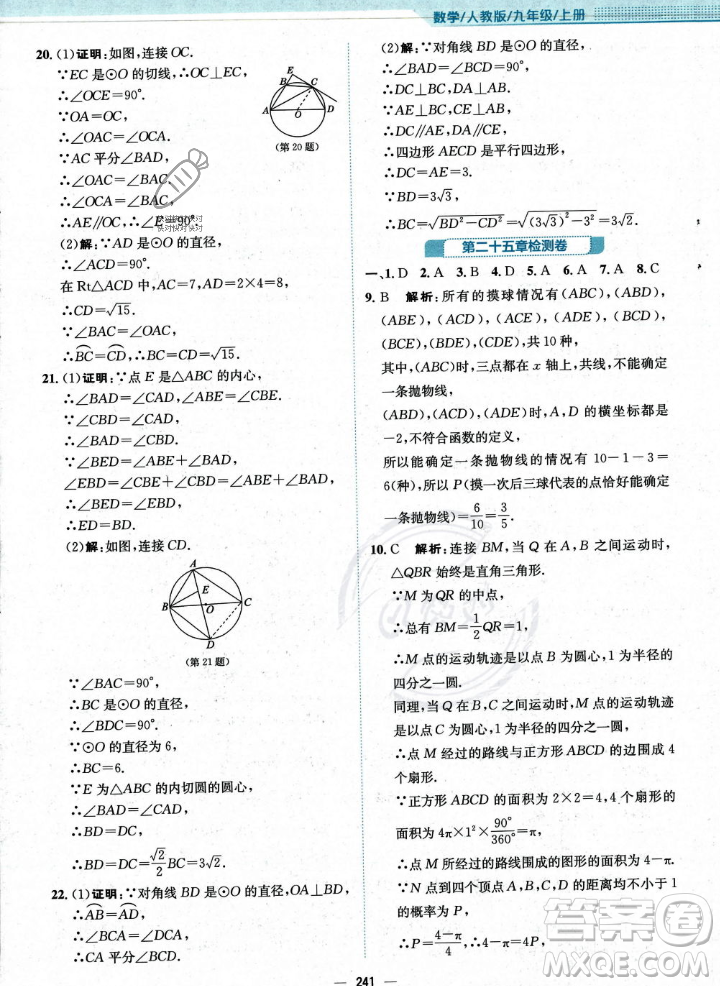 数学/人教版/九年级/上册
20. (1)证明:如图,连接OC.
∵EC是⊙O的切线,∴OC⊥EC.
∴∠OCE=90°.
∵OA=OC,
∴∠OAC=∠OCA.
∵AC平分∠BAD,
∴∠BAC=∠OAC.
∴∠OCA=∠BAC.
∴AE∥OC,∴∠E=90°.
E
B
C
A
O
D
(第20题)
(2)解:∵AD是⊙O的直径,
∴∠ACD=90°.
在Rt△ACD中,AC=7,AD=2×4=8,
∴CD=√15.
∵∠BAC=∠OAC,
∴BC=CD,∴BC=CD=√15.
21. (1)证明:∵点E是△ABC的内心,
∴∠BAD=∠CAD,∠ABE=∠CBE.
∵∠CBD=∠CAD,
∴∠BAD=∠CBD.
∵∠BED=∠ABE+∠BAD,
∠EBD=∠CBE+∠CBD=∠ABE+∠BAD,
∴∠BED=∠EBD.
∴ED=BD.
(2)解:如图,连接CD.
A
E
B
O
C
D
(第21题)
∵∠BAC=90°,
∴BC是⊙O的直径.
∴∠BDC=90°.
∵⊙O的直径为6,
∴BC=6.
∵E为△ABC的内切圆的圆心,
∴∠BAD=∠CAD.
∴BD=DC.
∴BD=DC=√2/2 BC=3√2.
22. (1)证明:∵对角线BD是⊙O的直径,OA⊥BD,
∴AB=AD,
∴∠BCA=∠ACD.
∴CA平分∠BCD.
(2)解:∵对角线BD是⊙O的直径,
∴∠BAD=∠BCD=90°.
∴DC⊥BC,DA⊥AB.
∵AE⊥BC,CE⊥AB,
∴DC∥AE,DA∥CE.
∴四边形AECD是平行四边形.
∴DC=AE=3.
∵BD=3√3,
∴BC=√(BD²-CD²)=√((3√3)²-3²)=3√2.
第二十五章检测卷
一、1. D 2. A 3. B 4. D 5. A 6. A 7. A 8. C
9. B 解析:所有的摸球情况有(ABC),(ABD),
(ABE),(ACD),(ACE),(ADE),(BCD),
(BCE),(BDE),(CDE),共10种,
其中,(ABC)时,三点都在x轴上,共线,不能确定
一条抛物线,
(ABD),(ACD),(ADE)时,A,D的横坐标都是
-2,不符合函数的定义,
所以能确定一条抛物线的情况有10-1-3=
6(种),所以P(摸一次后三球代表的点恰好能确定
一条抛物线)=6/10=3/5.
10. C 解析:连接BM,当Q在A,B之间运动时,
△QBR始终是直角三角形.
∵M为QR的中点,
∴总有BM=1/2 QR=1,
∴M点的运动轨迹是以点B为圆心,1为半径的
四分之一圆.
同理,当Q点在BC,CD,DA边运动时,点M轨迹
是以点C,D,A为圆心,1为半径的四分之一圆,
∴点M经过的路线与正方形ABCD边围成4个
扇形.
∵正方形ABCD的面积为2×2=4,4个扇形的
面积为4π×90°/360°=π,
∴点M经过的路线围成的图形的面积为4-π.
∵N点到四个顶点A,B,C,D的距离均不小于1
的概率为P,
∴P=(4-π)/4,∴4-π=4P.
241
答案卷